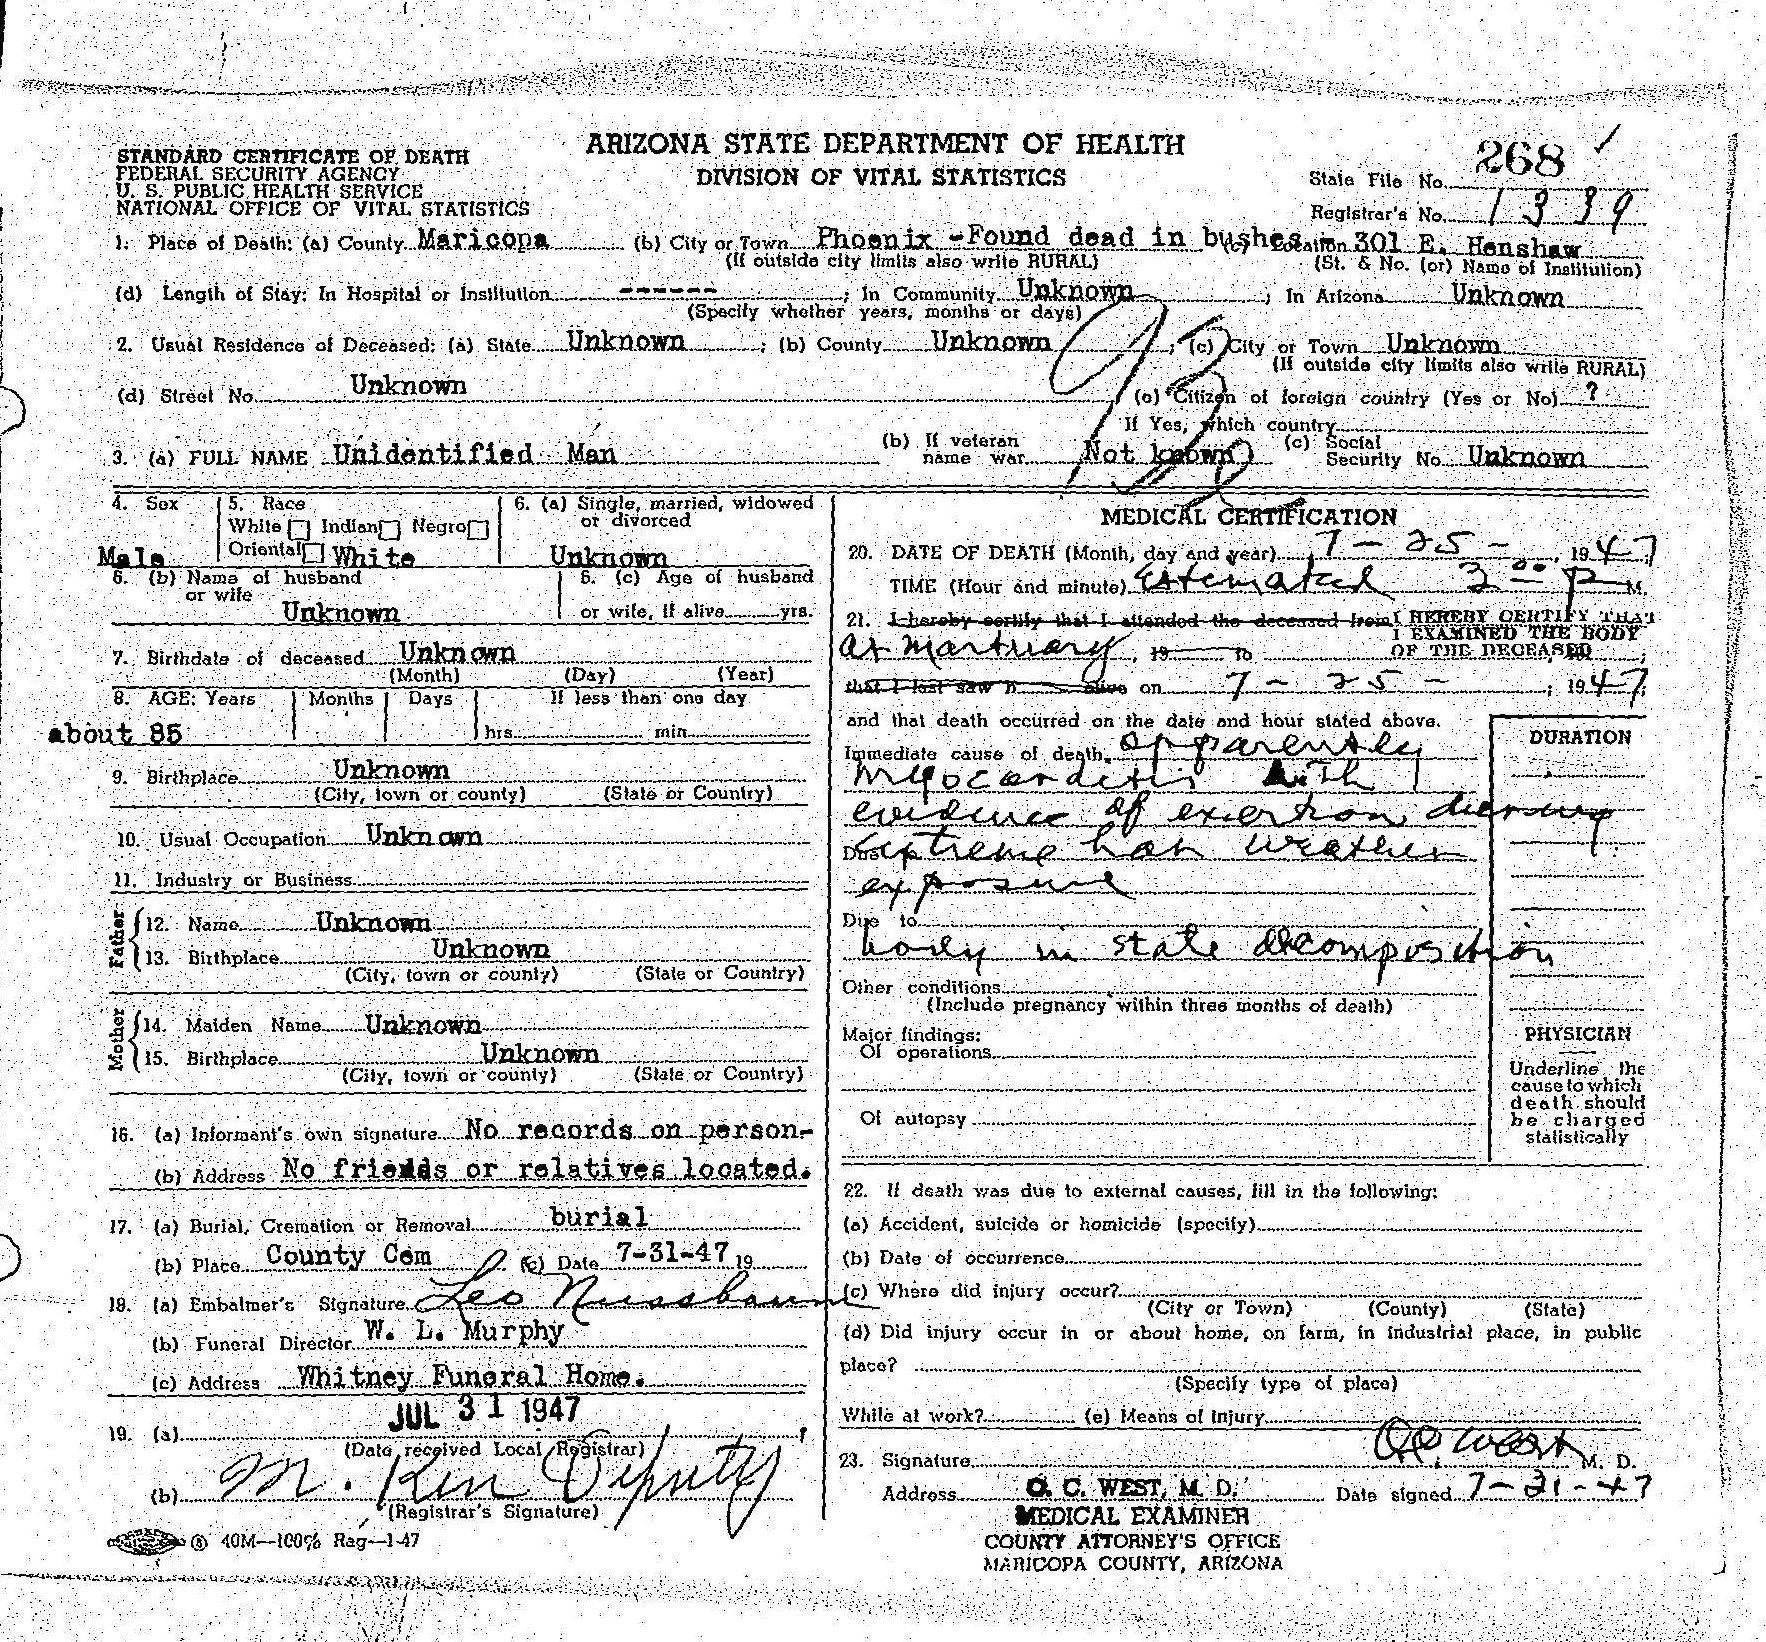 STANDARD CERTIFICATE OF DEATH
FEDERAL SECURITY AGENCY
U. S. PUBLIC HEALTH SERVICE
NATIONAL OFFICE OF VITAL STATISTICS
ARIZONA STATE DEPARTMENT OF HEALTH
DIVISION OF VITAL STATISTICS
268
State File No.
Registrar's No. 1339
1. Place of Death: (a) County Maricopa (b) City or Town Phoenix - Found dead in bushes - (c) Location 301 E. Henshaw
(If outside city limits also write RURAL) (St. & No. (or) Name of Institution)
(d) Length of Stay: In Hospital or Institution ------ ; In Community Unknown ; In Arizona Unknown
(Specify whether years, months or days)
2. Usual Residence of Deceased: (a) State Unknown ; (b) County Unknown ; (c) City or Town Unknown
(If outside city limits also write RURAL)
(d) Street No. Unknown (e) Citizen of foreign country (Yes or No) ?
If Yes, which country
3. (a) FULL NAME Unidentified Man (b) If veteran name war Not known (c) Social Security No. Unknown
4. Sex Male
5. Race
White Indian Negro
Oriental White
6. (a) Single, married, widowed or divorced
Unknown
6. (b) Name of husband or wife
Unknown
6. (c) Age of husband or wife, if alive yrs.
7. Birthdate of deceased Unknown
(Month) (Day) (Year)
8. AGE: Years Months Days If less than one day
about 85 hrs. min.
9. Birthplace Unknown
(City, town or county) (State or Country)
10. Usual Occupation Unknown
11. Industry or Business
Father
12. Name Unknown
13. Birthplace Unknown
(City, town or county) (State or Country)
Mother
14. Maiden Name Unknown
15. Birthplace Unknown
(City, town or county) (State or Country)
16. (a) Informant's own signature No records on person-
(b) Address No friends or relatives located.
17. (a) Burial, Cremation or Removal burial
(b) Place County Cem (c) Date 7-31-47 19
18. (a) Embalmer's Signature Leo Nussbaum
(b) Funeral Director W. L. Murphy
(c) Address Whitney Funeral Home.
19. (a) JUL 31 1947
(Date received Local Registrar)
(b) M. Ken Deputy
(Registrar's Signature)
40M—100% Rag—1-47
MEDICAL CERTIFICATION
20. DATE OF DEATH (Month, day and year) 7-25-, 1947
TIME (Hour and minute) Estimated 3 00 P M.
21. I hereby certify that I attended the deceased from I HEREBY CERTIFY THAT
I EXAMINED THE BODY
OF THE DECEASED
at Mortuary, 19 to
that I last saw h alive on 7-25-, 1947;
and that death occurred on the date and hour stated above.
Immediate cause of death apparently
myocarditis with
evidence of exertion during
Due to extreme hot weather
exposure
Due to
body in state decomposition
Other conditions
(Include pregnancy within three months of death)
Major findings:
Of operations
Of autopsy
DURATION
PHYSICIAN
Underline the
cause to which
death should
be charged
statistically
22. If death was due to external causes, fill in the following:
(a) Accident, suicide or homicide (specify)
(b) Date of occurrence
(c) Where did injury occur?
(City or Town) (County) (State)
(d) Did injury occur in or about home, on farm, in industrial place, in public
place?
(Specify type of place)
While at work? (e) Means of injury
23. Signature O.C. West M. D.
Address O. C. WEST, M. D. Date signed 7-31-47
MEDICAL EXAMINER
COUNTY ATTORNEY'S OFFICE
MARICOPA COUNTY, ARIZONA